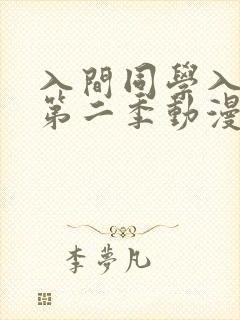 入間同學入
第二季動漫
李夢凡